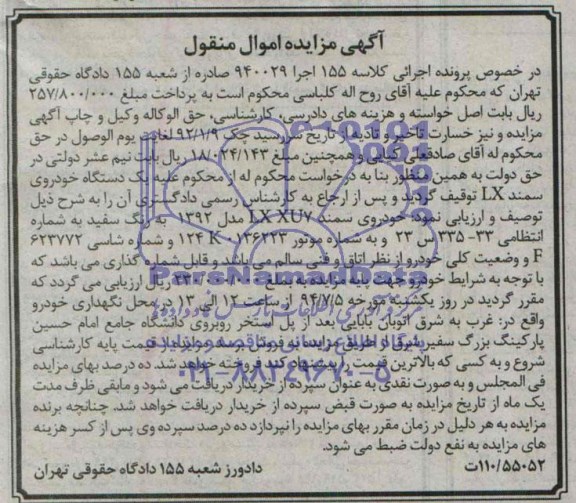 آگهی مزایده اموال منقول
در خصوص پرونده اجرائی کلاسه ۱۵۵ اجرا ۹۴۰۰۲۹ صادره از شعبه ۱۵۵ دادگاه حقوقی
تهران که محکوم علیه آقای روح اله کلباسی محکوم است به پرداخت مبلغ ۲۵۷/۸۰۰/۰۰۰
ریال بابت اصل خواسته و هزینه های دادرسی، کارشناسی، حق الوکاله وکیل و چاپ آگهی
مزایده و نیز خسارت تاخیر و تادیه از تاریخ سررسید چک ۹۲/۱/۹ لغایت یوم الوصول در حق
محکوم له آقای صادقعلی کیایی و همچنین مبلغ ۱۸/۰۲۴/۱۴۳ ریال بابت نیم عشر دولتی در
حق دولت به همین منظور بنا به درخواست محکوم له از محکوم علیه یک دستگاه خودروی
سمند LX توقیف گردید و پس از ارجاع به کارشناس رسمی دادگستری آن را به شرح ذیل
توصیف و ارزیابی نمود: خودروی سمند LX XU۷ مدل ۱۳۹۲ به رنگ سفید به شماره
انتظامی ۳۳- ۳۳۵ س ۲۳ و به شماره موتور ۱۲۴ K ۰۱۳۶۲۲۳ و شماره شاسی ۶۲۳۷۷۲
F و وضعیت کلی خودرو از نظر اتاق و فنی سالم می باشد و قابل شماره گذاری می باشد که
با توجه به شرایط خودرو جهت پایه مزایده به مبلغ ریال ارزیابی می گردد که
مقرر گردید در روز یکشنبه مورخه ۹۴/۷/۵ از ساعت ۱۲ الی ۱۳ در محل نگهداری خودرو
واقع در: غرب به شرق اتوبان بابایی بعد از پل استخر روبروی دانشگاه جامع امام حسین
پارکینگ بزرگ سفیر شرق از طریق مزایده به فروش برسد و مزایده از قیمت پایه کارشناسی
شروع و به کسی که بالاترین قیمت را پیشنهاد کند فروخته خواهد شد. ده درصد بهای مزایده
فی المجلس و به صورت نقدی به عنوان سپرده از خریدار دریافت می شود و مابقی ظرف مدت
یک ماه از تاریخ مزایده به صورت قبض سپرده از خریدار دریافت خواهد شد. چنانچه برنده
مزایده به هر دلیل در زمان مقرر بهای مزایده را نپردازد ده درصد سپرده وی پس از کسر هزینه
های مزایده به نفع دولت ضبط می شود.
۱۱۰/۵۵۰۵۲ت دادورز شعبه ۱۵۵ دادگاه حقوقی تهران
ParsNamadData
۰۲۱-۸۸۳۴۹۶۷۰-۵